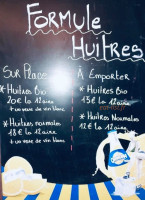 Formule
Huîtres
Sur Place
* Huîtres Bio
20€ la 12aine
+ un verre de vin blanc
* Huîtres normales
18€ la 12aine
+ un verre de vin blanc
À Emporter
* Huîtres Bio
15€ la 12aine
* Huîtres Normales
12€ la 12aine